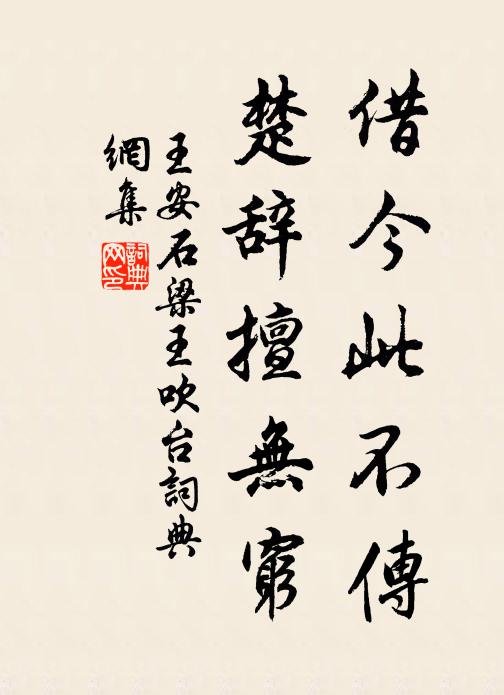 借今此不傳
楚辞擅無窮
王安石梁王吹台詞典
網集
詞典
网印